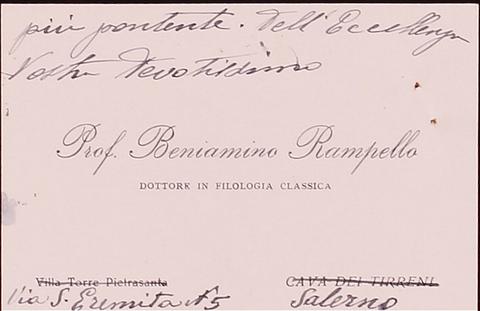 più pontente. Dell'Eccellenza
Vostra Devotissimo
Prof. Beniamino Rampello
DOTTORE IN FILOLOGIA CLASSICA
Villa Torre Pietrasanta
CAVA DEI TIRRENI
Via S. Eremita N 5
Salerno